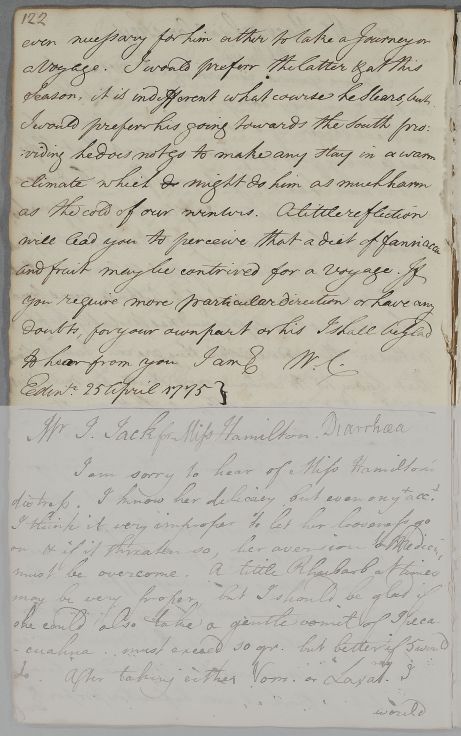 122
even necessary for him either to take a Journey or
a Voyage. I would preferr the latter & at this
season, it is indifferent what course he Steers, but
I would preferr his going towards the South pro:
:viding he does not go to make any stay in a warm
climate which might do him as much harm
as the cold of our winters. A little reflection
will lead you to perceive that a diet of farinacea
and fruit may be contrived for a voyage. If
you require more particular direction or have any
doubts, for your own part or his I shall be glad
to hear from you I am & W. C.
Edinr. 25 April 1775 }
Mr J. Jack for Miss Hamilton. Diarrhœa
I am sorry to hear of Miss Hamiltons
distress. I know her delicacy but even on yt acct.
I think it very improper to let her looseness go
on & if it threaten so, her aversion to Medicine
must be overcome. A little Rhubarb at times
may be very proper, but I should be glad if
she could also take a gentle vomit of Ipeca
-cuahna must exceed gr. but better if 5 would
do. After taking either Vom. or Laxat. I
would